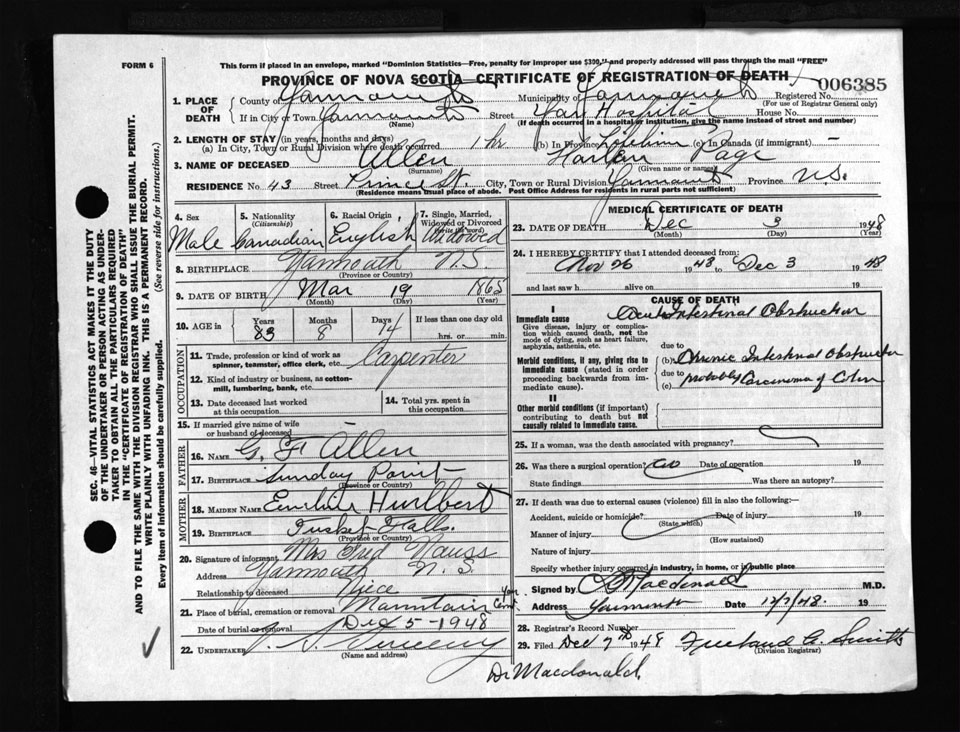 FORM 6
This form if placed in an envelope, marked "Dominion Statistics—Free, penalty for improper use $300," and properly addressed will pass through the mail "FREE"
PROVINCE OF NOVA SCOTIA—CERTIFICATE OF REGISTRATION OF DEATH
006385
1. PLACE OF DEATH County of Yarmouth Municipality of Yarmouth Registered No.
(For use of Registrar General only)
If in City or Town Yarmouth Street Yar Hospital House No.
(Name) (If death occurred in a hospital or institution, give the name instead of street and number)
2. LENGTH OF STAY (in years, months and days)
(a) In City, Town or Rural Division where death occurred 1 hr (b) In Province Lifetime (c) In Canada (if immigrant)
3. NAME OF DECEASED Allen Harlan Page
(Surname) (Given name or names)
RESIDENCE No. 43 Street Prince St. City, Town or Rural Division Yarmouth Province N.S.
(Residence means usual place of abode. Post Office Address for residents in rural parts not sufficient)
4. Sex 5. Nationality (Citizenship) 6. Racial Origin 7. Single, Married, Widowed or Divorced (write the word)
Male Canadian English Widowed
8. BIRTHPLACE Yarmouth N.S
(Province or Country)
9. DATE OF BIRTH Mar 19 1865
(Month) (Day) (Year)
10. AGE in Years Months Days If less than one day
83 8 14 hrs. or min.
OCCUPATION
11. Trade, profession or kind of work as spinner, teamster, office clerk, etc. Carpenter
12. Kind of industry or business, as cotton-mill, lumbering, bank, etc.
13. Date deceased last worked at this occupation
14. Total yrs. spent in this occupation
15. If married give name of wife or husband of deceased
FATHER
16. NAME G. F Allen
17. BIRTHPLACE Sunday Point
(Province or Country)
MOTHER
18. MAIDEN NAME Hurlbert
19. BIRTHPLACE Tusket Falls.
(Province or Country)
20. Signature of informant Mrs Fred Nauss
Address Yarmouth N. S.
Relationship to deceased Niece
21. Place of burial, cremation or removal Mountain Cem
Date of burial or removal Dec 5-1948
22. UNDERTAKER
(Name and address)
MEDICAL CERTIFICATE OF DEATH
23. DATE OF DEATH Dec 3 1948
(Month) (Day) (Year)
24. I HEREBY CERTIFY that I attended deceased from:
Nov 26 1948 to Dec 3 1948
and last saw h alive on 19
CAUSE OF DEATH
I
Immediate cause Acute Intestinal Obstruction
Give disease, injury or complication which caused death, not the mode of dying, such as heart failure, asphyxia, asthenia, etc.
due to
Morbid conditions, if any, giving rise to immediate cause (stated in order proceeding backwards from immediate cause).
(b) Chronic Intestinal Obstruction
due to
(c) Probably Carcinoma of Colon
II
Other morbid conditions (if important) contributing to death but not causally related to immediate cause.
25. If a woman, was the death associated with pregnancy?
26. Was there a surgical operation? no Date of operation 19
State findings Was there an autopsy?
27. If death was due to external causes (violence) fill in also the following:—
Accident, suicide or homicide? Date of injury 19
(State which)
Manner of injury
(How sustained)
Nature of injury
Specify whether injury occurred in industry, in home, or in public place
Signed by Macdonald M.D.
Address Yarmouth Date 12/7/48 19
28. Registrar's Record Number
29. Filed Dec 7th 1948 Smith
(Division Registrar)
Dr Macdonald
SEC. 46—VITAL STATISTICS ACT MAKES IT THE DUTY
OF THE UNDERTAKER OR PERSON ACTING AS UNDERTAKER
TO OBTAIN ALL THE PARTICULARS REQUIRED
IN THE "CERTIFICATE OF REGISTRATION OF DEATH"
AND TO FILE THE SAME WITH THE DIVISION REGISTRAR WHO SHALL ISSUE THE BURIAL PERMIT.
WRITE PLAINLY WITH UNFADING INK. THIS IS A PERMANENT RECORD.
Every item of information should be carefully supplied. (See reverse side for instructions.)